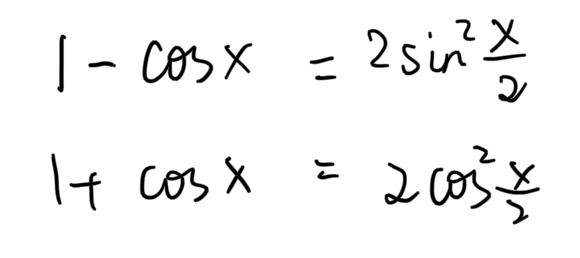 1 - cosx = 2sin²x/2
1 + cosx = 2cos²x/2